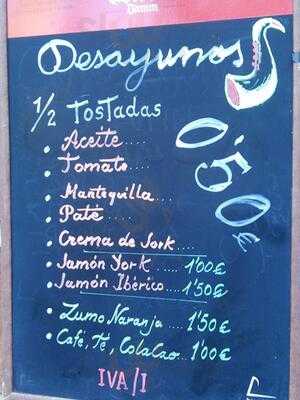 Damm
Desayunos
1/2 Tostadas
• Aceite....
• Tomato...
• Mantequilla....
• Paté....
• Crema de Jork....
0'50€
• Jamón York ..... 1'00€
• Jamón Ibérico.... 1'50€
• Zumo Naranja .... 1'50€
• Café, Té, Colacao... 1'00€
IVA/I